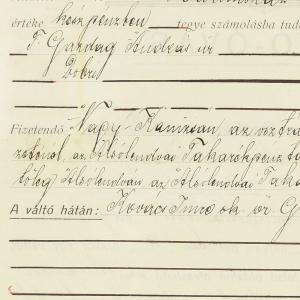 értéke készpénzben tegye számolásba tud
T. Gazdag András úr
Dobri
Fizetendő Nagy-Kanizsán, az osztrá
az Alsólendvai Takarékpénztá
Alsólendván az Alsólendvai Taka
A váltó hátán: Kovács Imre ok. úr G